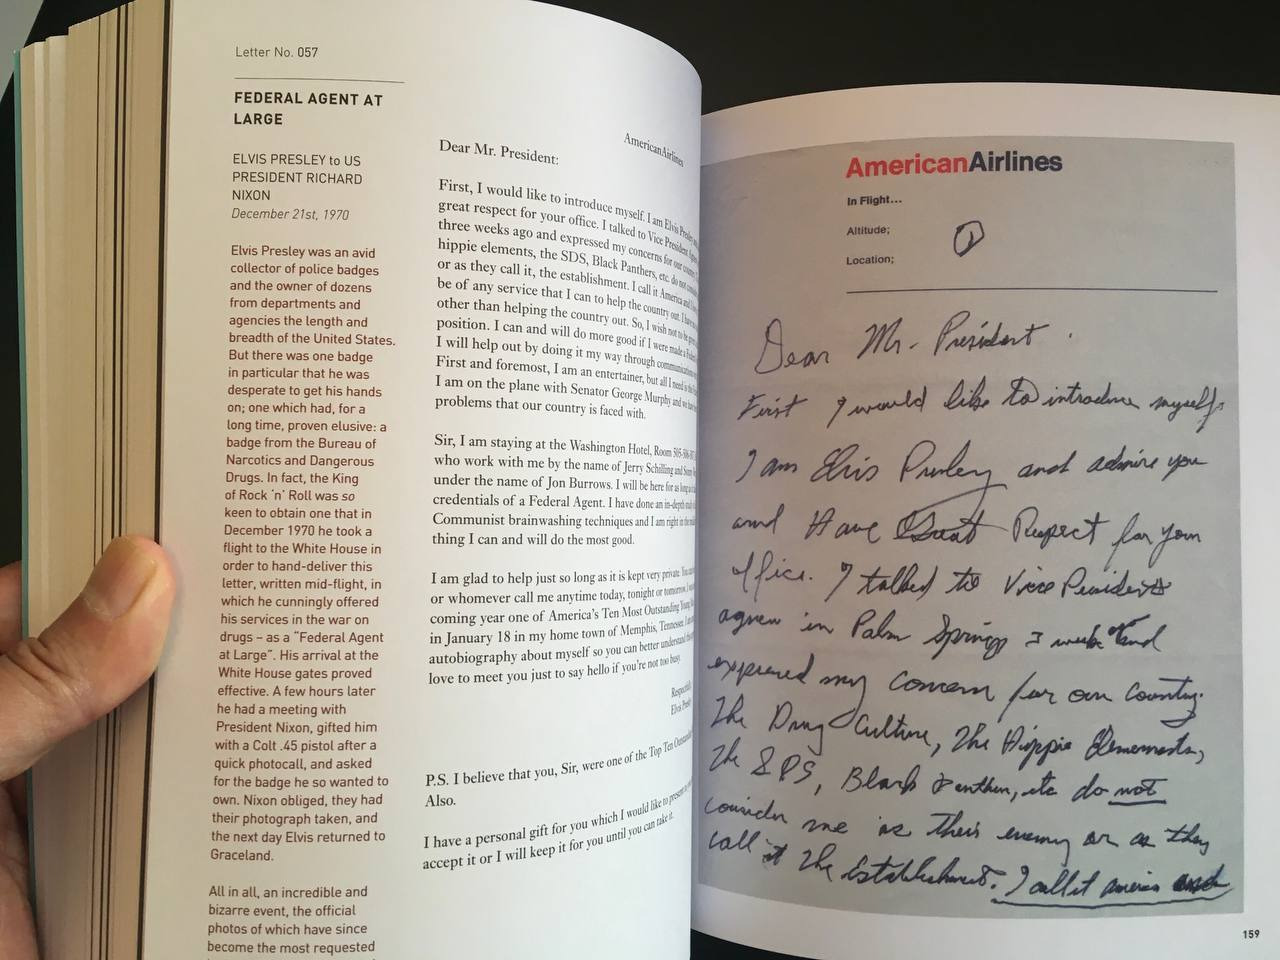 Letter No. 057
FEDERAL AGENT AT
LARGE
ELVIS PRESLEY to US
PRESIDENT RICHARD
NIXON
December 21st, 1970
Elvis Presley was an avid
collector of police badges
and the owner of dozens
from departments and
agencies the length and
breadth of the United States.
But there was one badge
in particular that he was
desperate to get his hands
on; one which had, for a
long time, proven elusive: a
badge from the Bureau of
Narcotics and Dangerous
Drugs. In fact, the King
of Rock 'n' Roll was so
keen to obtain one that in
December 1970 he took a
flight to the White House in
order to hand-deliver this
letter, written mid-flight, in
which he cunningly offered
his services in the war on
drugs – as a "Federal Agent
at Large". His arrival at the
White House gates proved
effective. A few hours later
he had a meeting with
President Nixon, gifted him
with a Colt .45 pistol after a
quick photocall, and asked
for the badge he so wanted to
own. Nixon obliged, they had
their photograph taken, and
the next day Elvis returned to
Graceland.
All in all, an incredible and
bizarre event, the official
photos of which have since
become the most requested
AmericanAirlines
Dear Mr. President:
First, I would like to introduce myself. I am Elvis Presley
great respect for your office. I talked to Vice President
three weeks ago and expressed my concerns for our
hippie elements, the SDS, Black Panthers, etc. do not
or as they call it, the establishment. I call it America and
be of any service that I can to help the country out. I have
other than helping the country out. So, I wish not to be
position. I can and will do more good if I were made a
I will help out by doing it my way through communications
First and foremost, I am an entertainer, but all I need is the
I am on the plane with Senator George Murphy and we
problems that our country is faced with.
Sir, I am staying at the Washington Hotel, Room 505-506-
who work with me by the name of Jerry Schilling and Sonny
under the name of Jon Burrows. I will be here for as long as
credentials of a Federal Agent. I have done an in-depth
Communist brainwashing techniques and I am right in the
thing I can and will do the most good.
I am glad to help just so long as it is kept very private. You
or whomever call me anytime today, tonight or tomorrow.
coming year one of America's Ten Most Outstanding Young
in January 18 in my home town of Memphis, Tennessee.
autobiography about myself so you can better understand
love to meet you just to say hello if you're not too busy.
Respectfully
Elvis Presley
P.S. I believe that you, Sir, were one of the Top Ten
Also.
I have a personal gift for you which I would like to present
accept it or I will keep it for you until you can take it.
AmericanAirlines
In Flight...
Altitude;
Location;
1
Dear Mr. President.
First I would like to introduce myself.
I am Elvis Presley and admire you
and Have Great Respect for your
office. I talked to Vice President
agnew in Palm Springs 3 weeks and
expressed my concern for our country.
The Drug Culture, The Hippie Elements,
The SDS, Black Panthers, etc do not
consider me as their enemy or as they
call it the Establishment. I call it america and
159